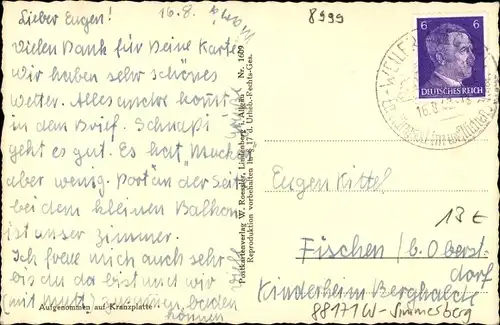 Lieber Eugen! 16.8.
Vielen Dank für Deine Karte.
Wir haben sehr schönes
Wetter. Alles andre kommt
in dem Brief. Schnapsi
geht es gut. Es hat
aber wenig. Dort an der Seite
bei dem kleinen Balkon
ist unser Zimmer.
Ich freue mich auch sehr
bis du da bist und wir
(mit Mutti) zusammen baden
können
Viele
Grüße
Aufgenommen auf Kranzplatte
Postkartenverlag W. Roessler, Lindenberg i. Allgäu Nr. 1609
Reproduktion vorbehalten lt. § 17 d. Urheb.-Rechts-Ges.
8999
6 6
DEUTSCHES REICH
WEILER
16.8.
Eugen Kittel
13 €
Fischen / b. Oberst-
dorf
Kinderheim Berghalde
88171 W-Simmesberg